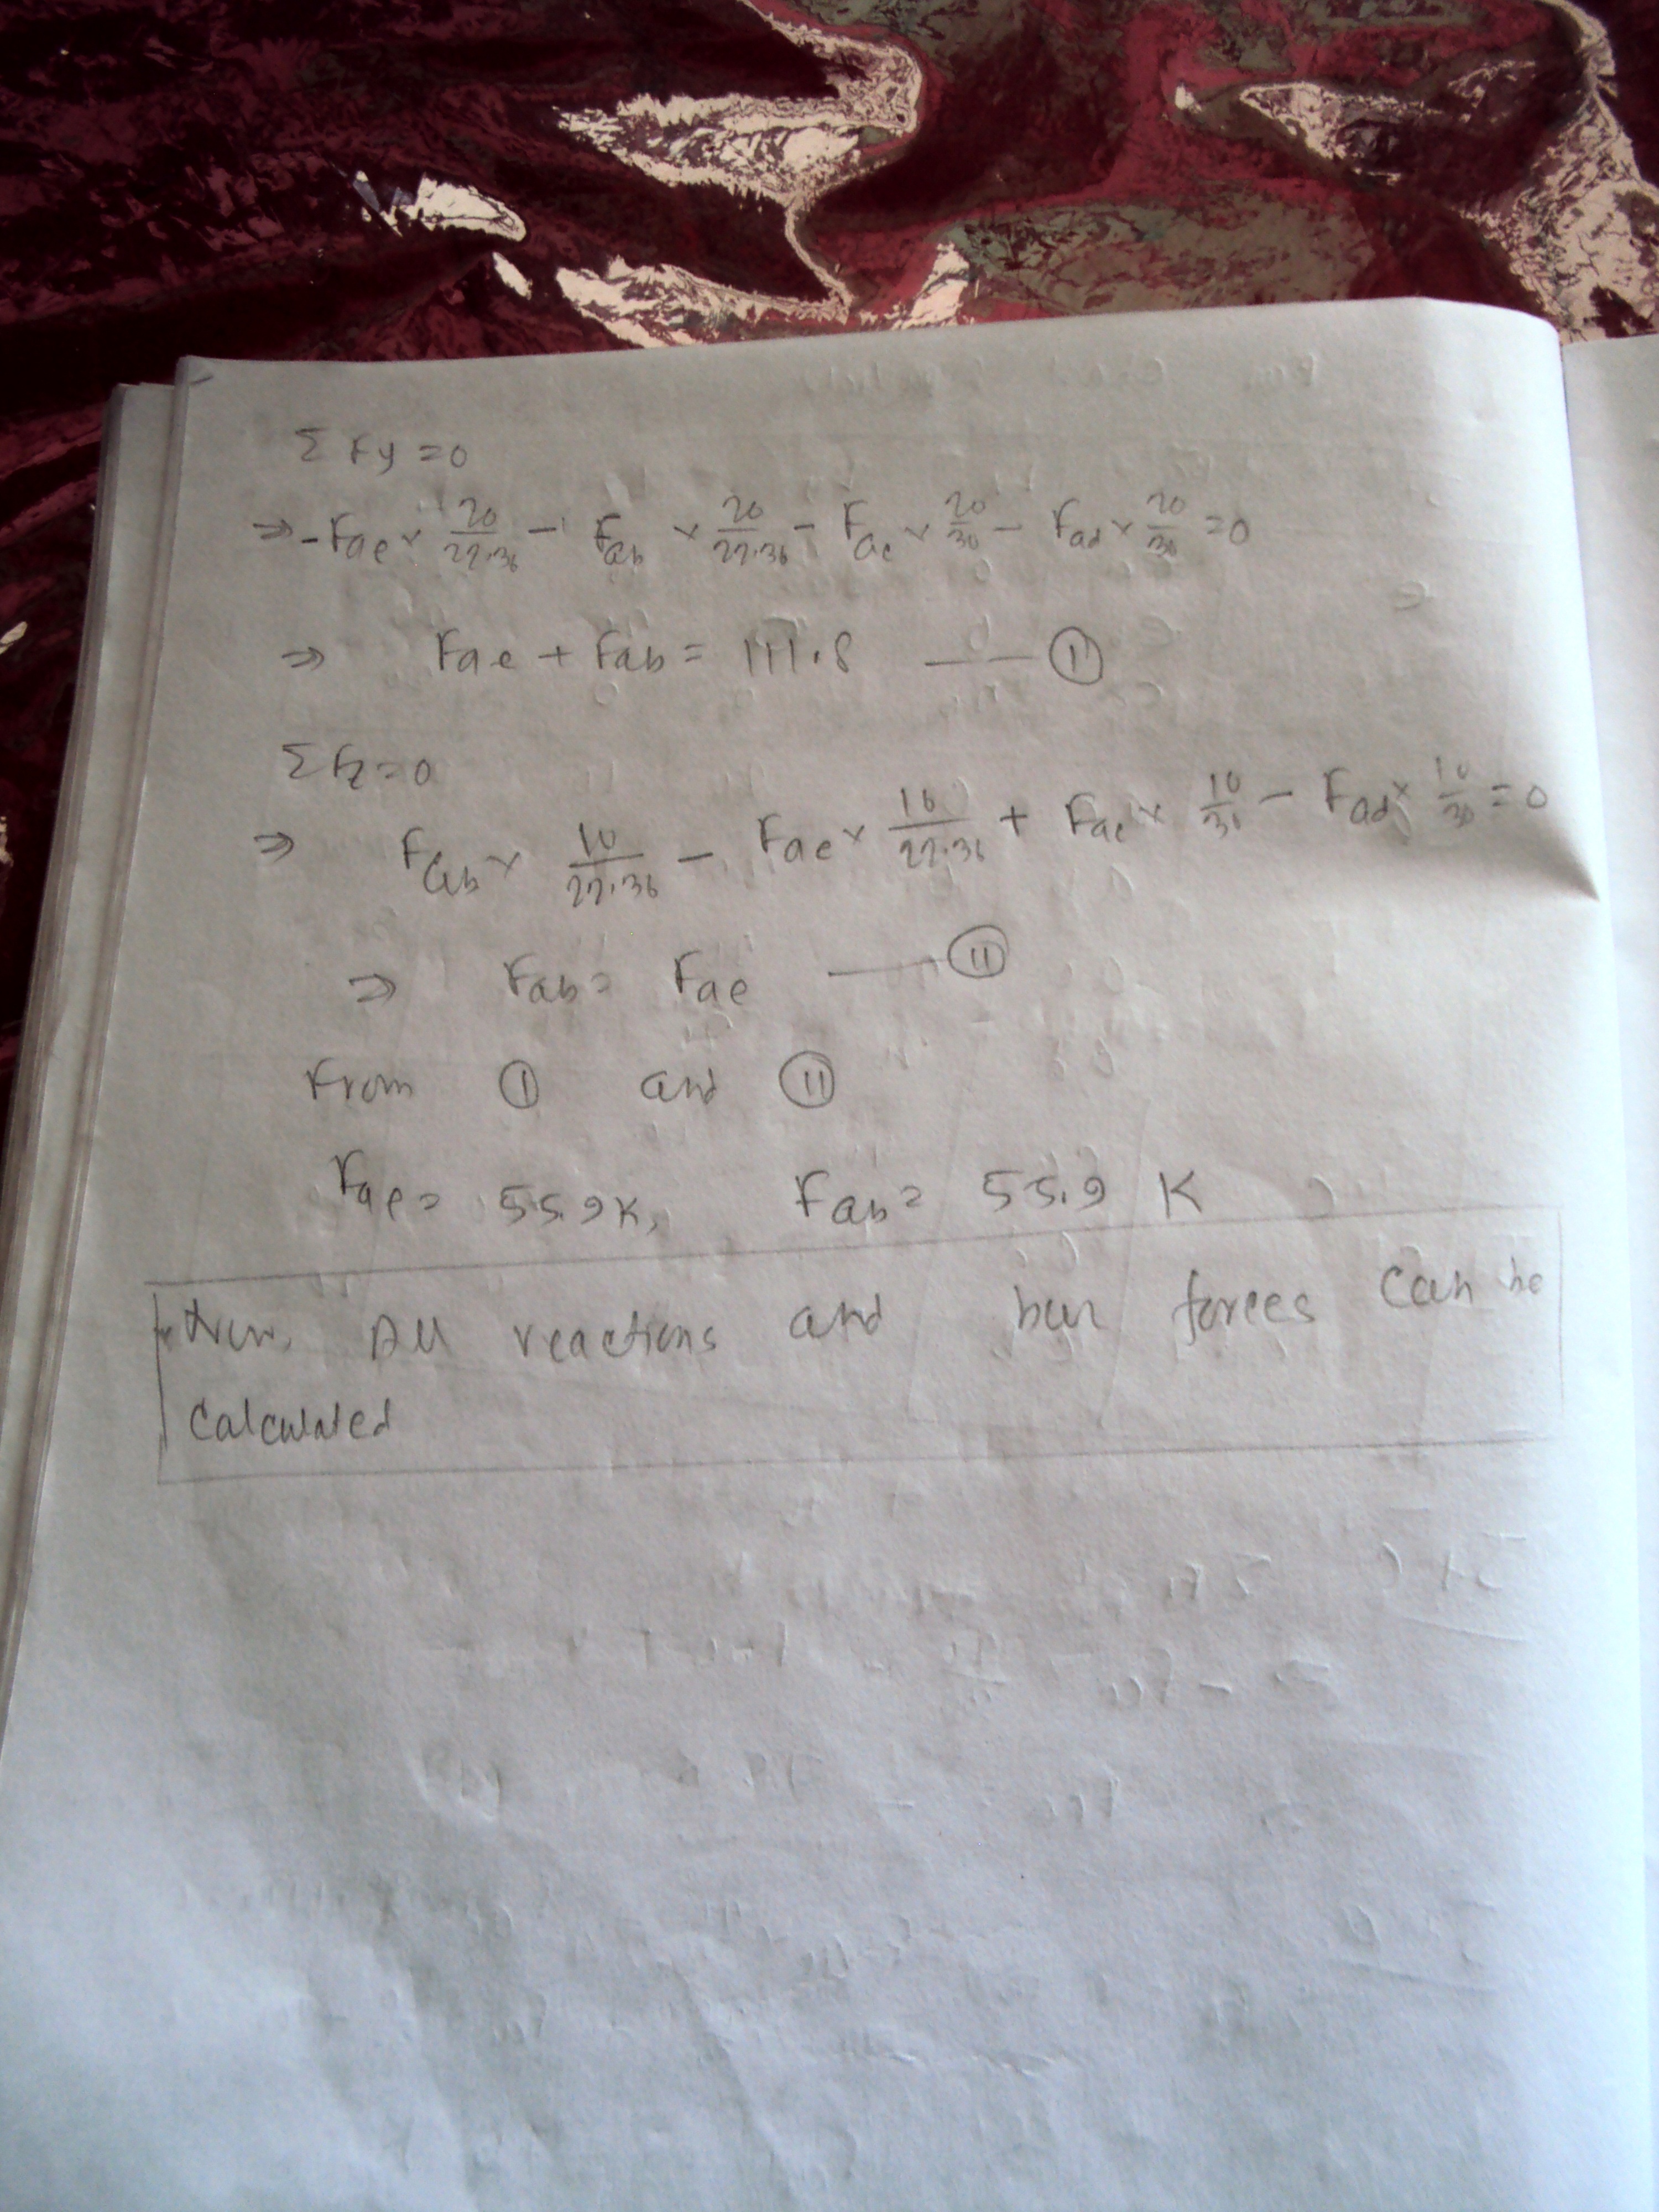 Σ Fy = 0
⇒ -Fae × 20/22.36 - Fab × 20/22.36 - Fac × 20/30 - Fad × 20/30 = 0
⇒ Fae + Fab = 111.8 —— ①
Σ Fz = 0
⇒ Fab × 10/22.36 - Fae × 10/22.36 + Fac × 10/30 - Fad × 10/30 = 0
⇒ Fab = Fae —— ⑪
From ① and ⑪
Fae = 55.9 K, Fab = 55.9 K
All reactions and bar forces can be
calculated